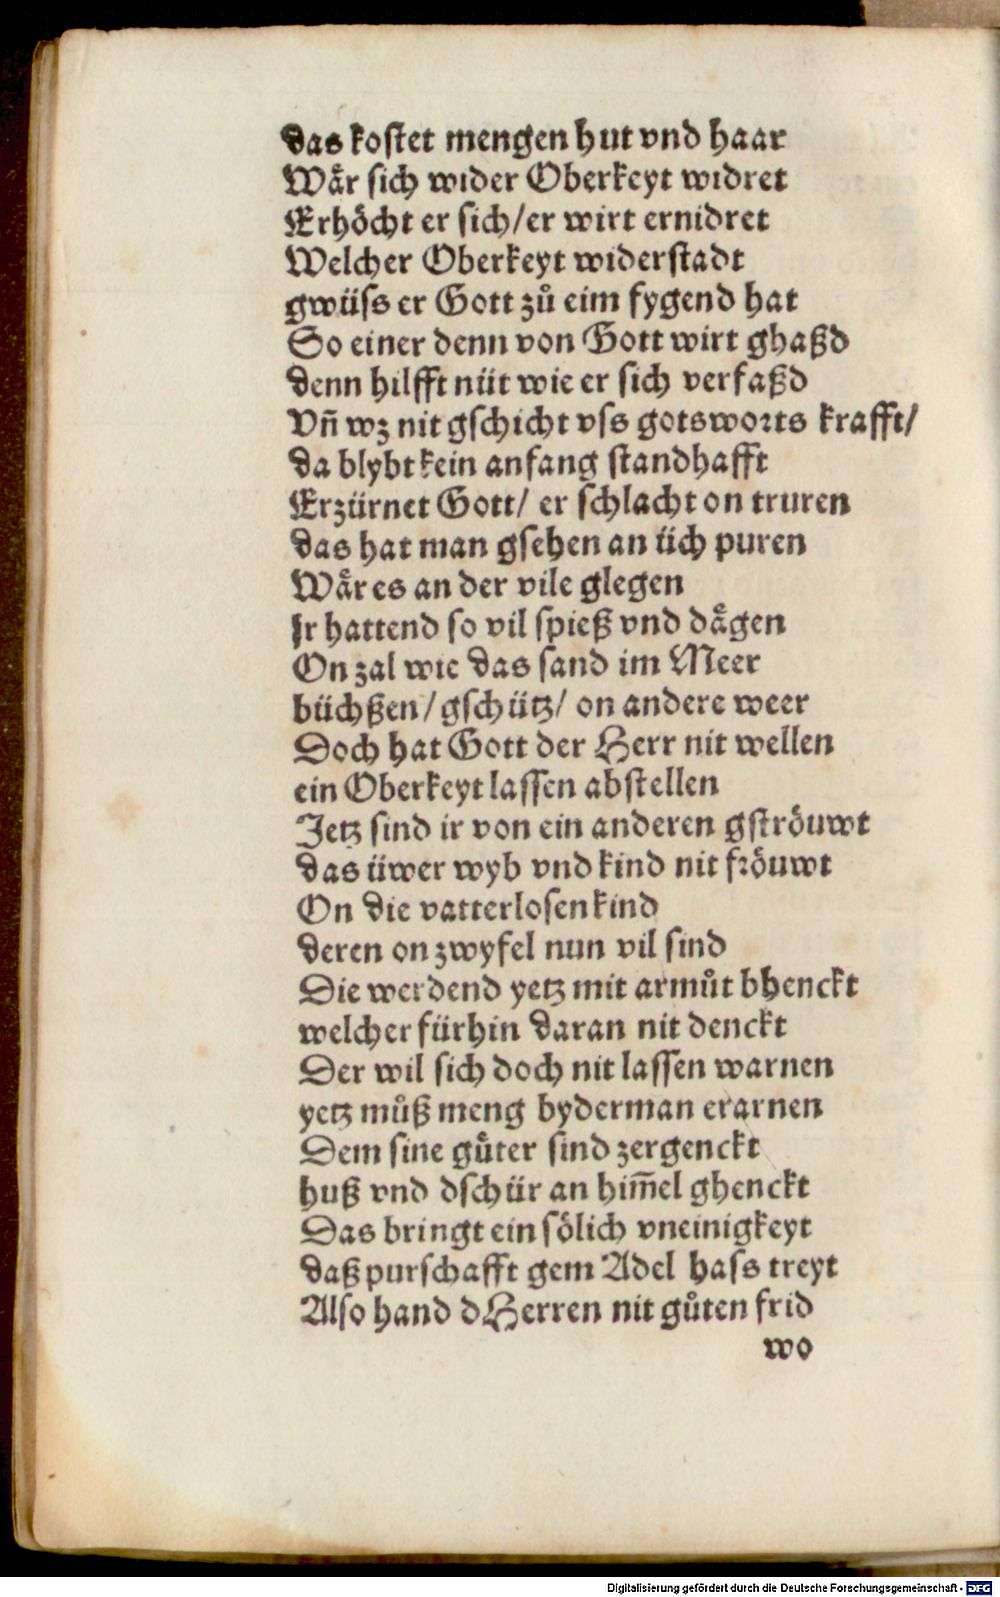 das kostet mengen hut vnd haar
Wår sich wider Oberkeyt widret
Erhöcht er sich/er wirt ernidret
Welcher Oberkeyt widerstadt
gwüss er Gott zů eim fygend hat
So einer denn von Gott wirt ghaßd
denn hilfft nüt wie er sich verfaßd
Vñ wz nit gschicht vss gotsworts krafft/
da blybt kein anfang standhafft
Erzürnet Gott/ er schlacht on truren
das hat man gsehen an üch puren
Wår es an der vile glegen
Ir hattend so vil spieß vnd dågen
On zal wie das sand im Meer
büchßen/gschütz/ on andere weer
Doch hat Gott der Herr nit wellen
ein Oberkeyt lassen abstellen
Jetz sind ir von ein anderen gströuwt
das üwer wyb vnd kind nit fröuwt
On die vatterlosen kind
deren on zwyfel nun vil sind
Die werdend yetz mit armůt bhenckt
welcher fürhin daran nit denckt
Der wil sich doch nit lassen warnen
yetz můß meng byderman erarnen
Dem sine gůter sind zergenckt
huß vnd dschür an him̄el ghenckt
Das bringt ein sölich vneinigkeyt
daß purschafft gem Adel hass treyt
Also hand dHerren nit gůten frid
wo
Digitalisierung gefördert durch die Deutsche Forschungsgemeinschaft - DFG